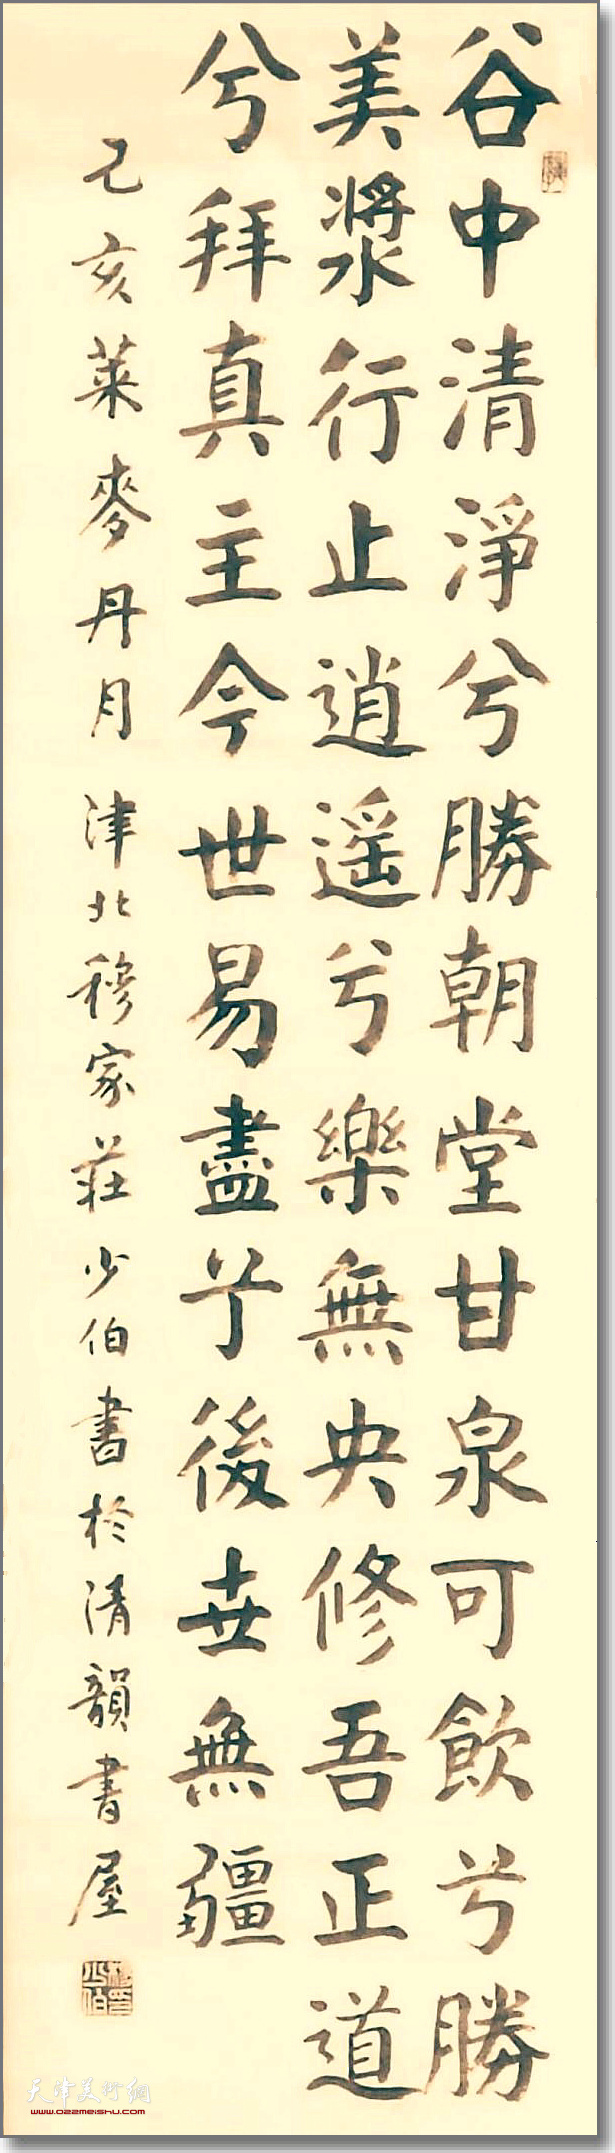 谷中清淨兮勝朝堂甘泉可飲兮勝
美漿行止逍遥兮樂無央修吾正道
兮拜真主今世易盡兮後世無疆
己亥菜麥丹月津北穆家莊少伯書於清韻書屋
天津美術網
www.022meishu.com